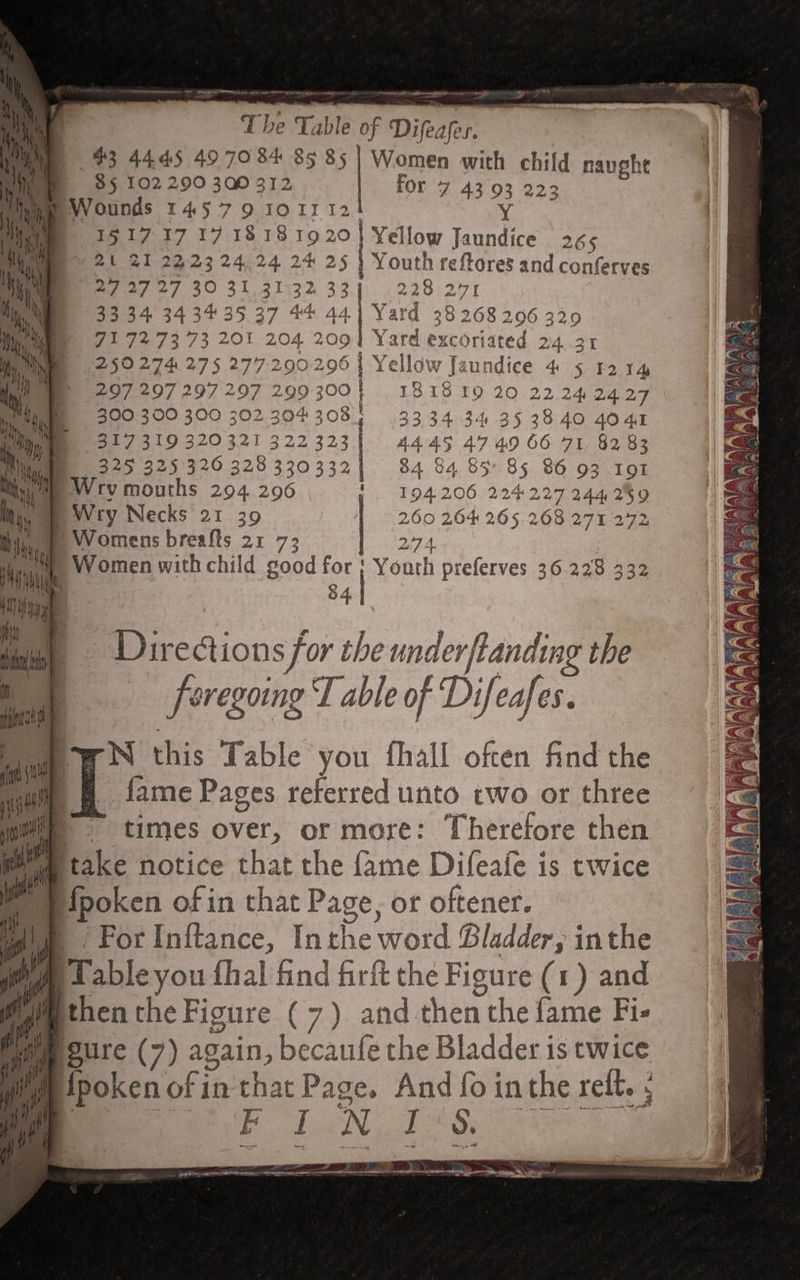 The Table of Difeafes.
43 44 45 49 70 84 85 85
85 102 290 300 312
Wounds 1 4 5 7 9 10 11 12
15 17 17 17 18 18 19 20
21 21 22 23 24 24 24 25
27 27 27 30 31 31 32 33
33 34 34 34 35 37 44 44
71 72 73 73 201 204 209
250 274 275 277 290 296
297 297 297 297 299 300
300 300 300 302 304 308
317 319 320 321 322 323
325 325 326 328 330 332
Wry mouths 294 296
Wry Necks 21 39
Womens breafts 21 73
Women with child good for
84
Women with child naught
for 7 43 93 223
Y
Yellow Jaundice 265
Youth reftores and conferves
228 271
Yard 38 268 296 329
Yard excoriated 24 31
Yellow Jaundice 4 5 12 14
18 18 19 20 22 24 24 27
33 34 34 35 38 40 40 41
44 45 47 49 66 71 82 83
84 84 85 85 86 93 191
194 206 224 227 244 259
260 264 265 268 271 272
274
Youth preferves 36 228 332
Directions for the underftanding the
foregoing Table of Difeafes.
IN this Table you fhall often find the
fame Pages referred unto two or three
times over, or more: Therefore then
take notice that the fame Difeafe is twice
fpoken of in that Page, or oftener.
For Inftance, In the word Bladder, in the
Table you fhal find firft the Figure (1) and
then the Figure (7) and then the fame Fi-
gure (7) again, becaufe the Bladder is twice
fpoken of in that Page. And fo in the reft.
FINIS.